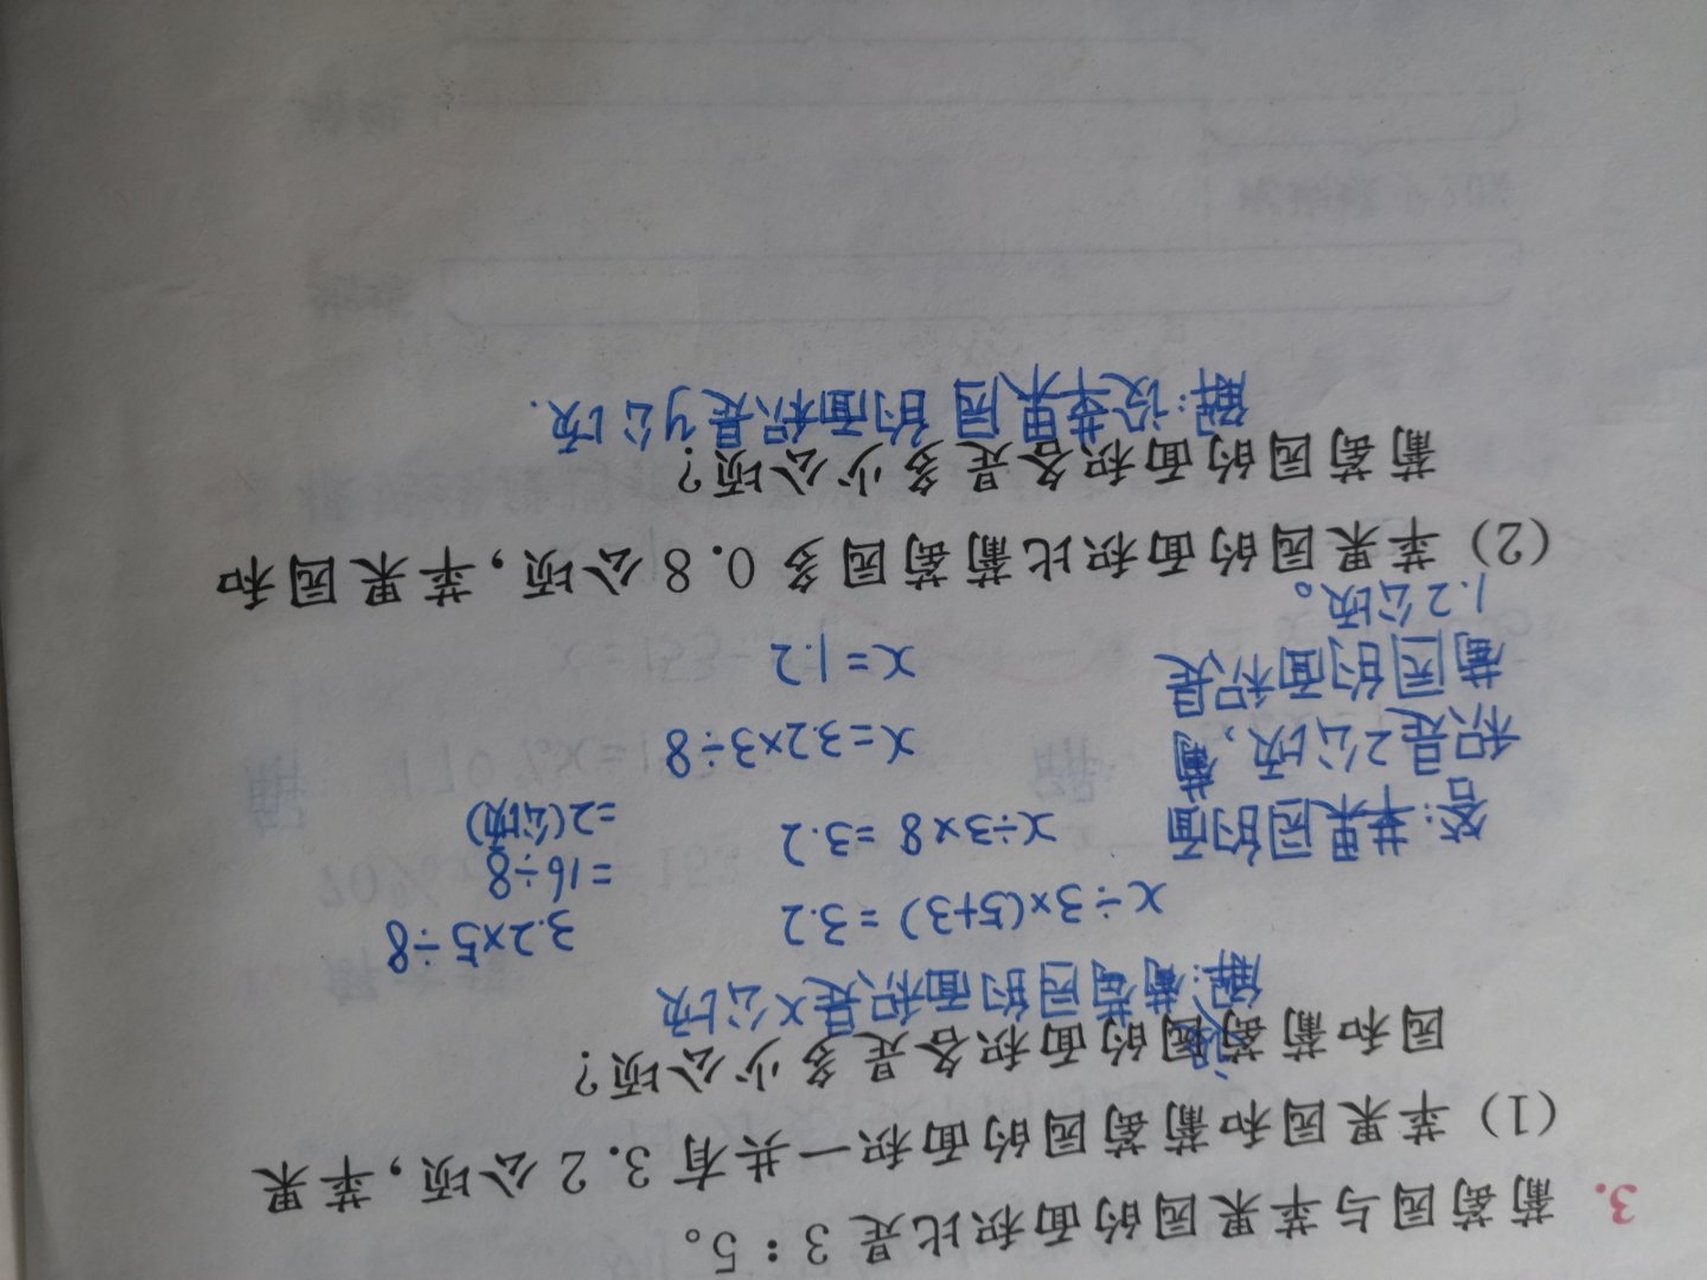 3. 葡萄园与苹果园的面积比是 3:5。
(1) 苹果园和葡萄园的面积一共有 3.2 公顷,苹果
园和葡萄园的面积各是多少公顷?
解:设葡萄园的面积是x公顷
x÷3×(5+3)=3.2
x÷3×8=3.2
x=3.2×3÷8
x=1.2
3.2×5÷8
=16÷8
=2(公顷)
答:苹果园的面
积是2公顷,葡
萄园的面积是
1.2公顷。
(2) 苹果园的面积比葡萄园多 0.8 公顷,苹果园和
葡萄园的面积各是多少公顷?
解:设苹果园的面积是y公顷.